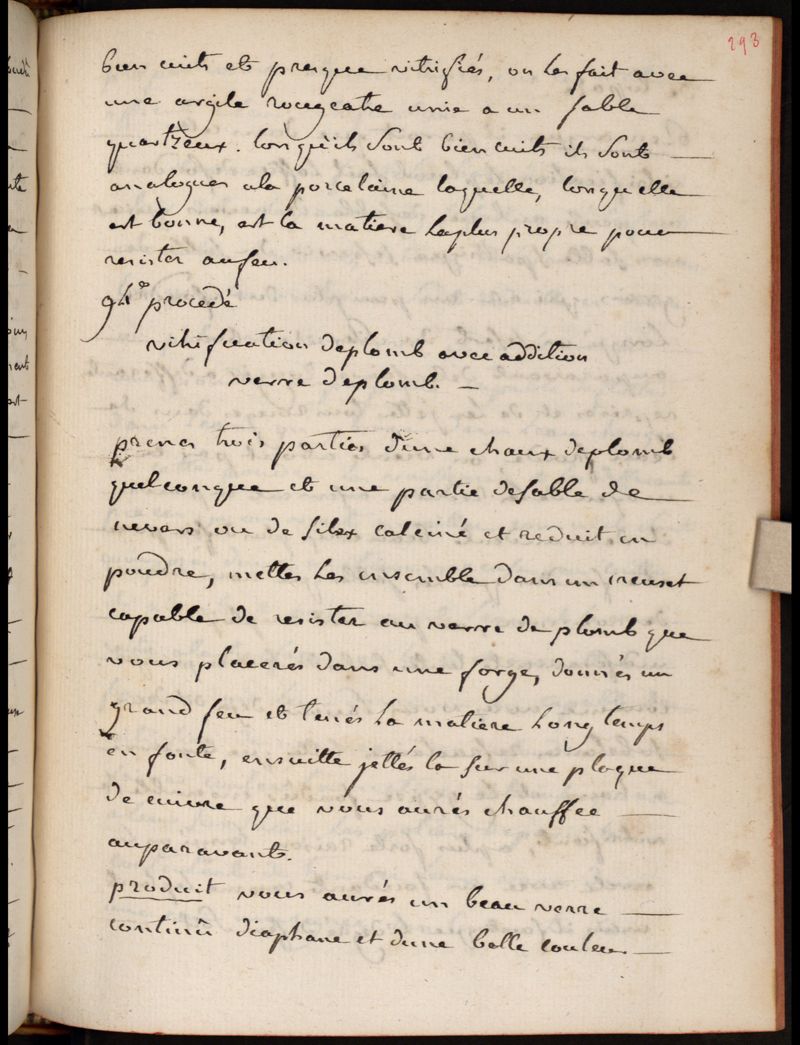 293
bien cuits et presque vitrifiés, on les fait avec
une argile rougeatre unie a un sable
quartzeux. lorsqu'ils sont bien cuits ils sont
analogues ala porcelaine laquelle, lorsquelle
est bonne, est la matiere laplus propre pour
resister aufeu.
procedé
vitrification deplomb avec addition
verre deplomb.
prenes trois parties d'une chaux deplomb
quelconque et une partie desable de
nevers ou de silex calciné et reduit en
poudre, mettes les ensemble dans un creuset
capable de resister au verre de plomb que
vous placerés dans une forge, donnés un
grand feu et tenés la matiere longtemps
en fonte, ensuitte jettés la sur une plaque
de cuivre que vous aurés chauffee
auparavant.
produit vous aurés un beau verre
continû diaphane et dune belle couleur